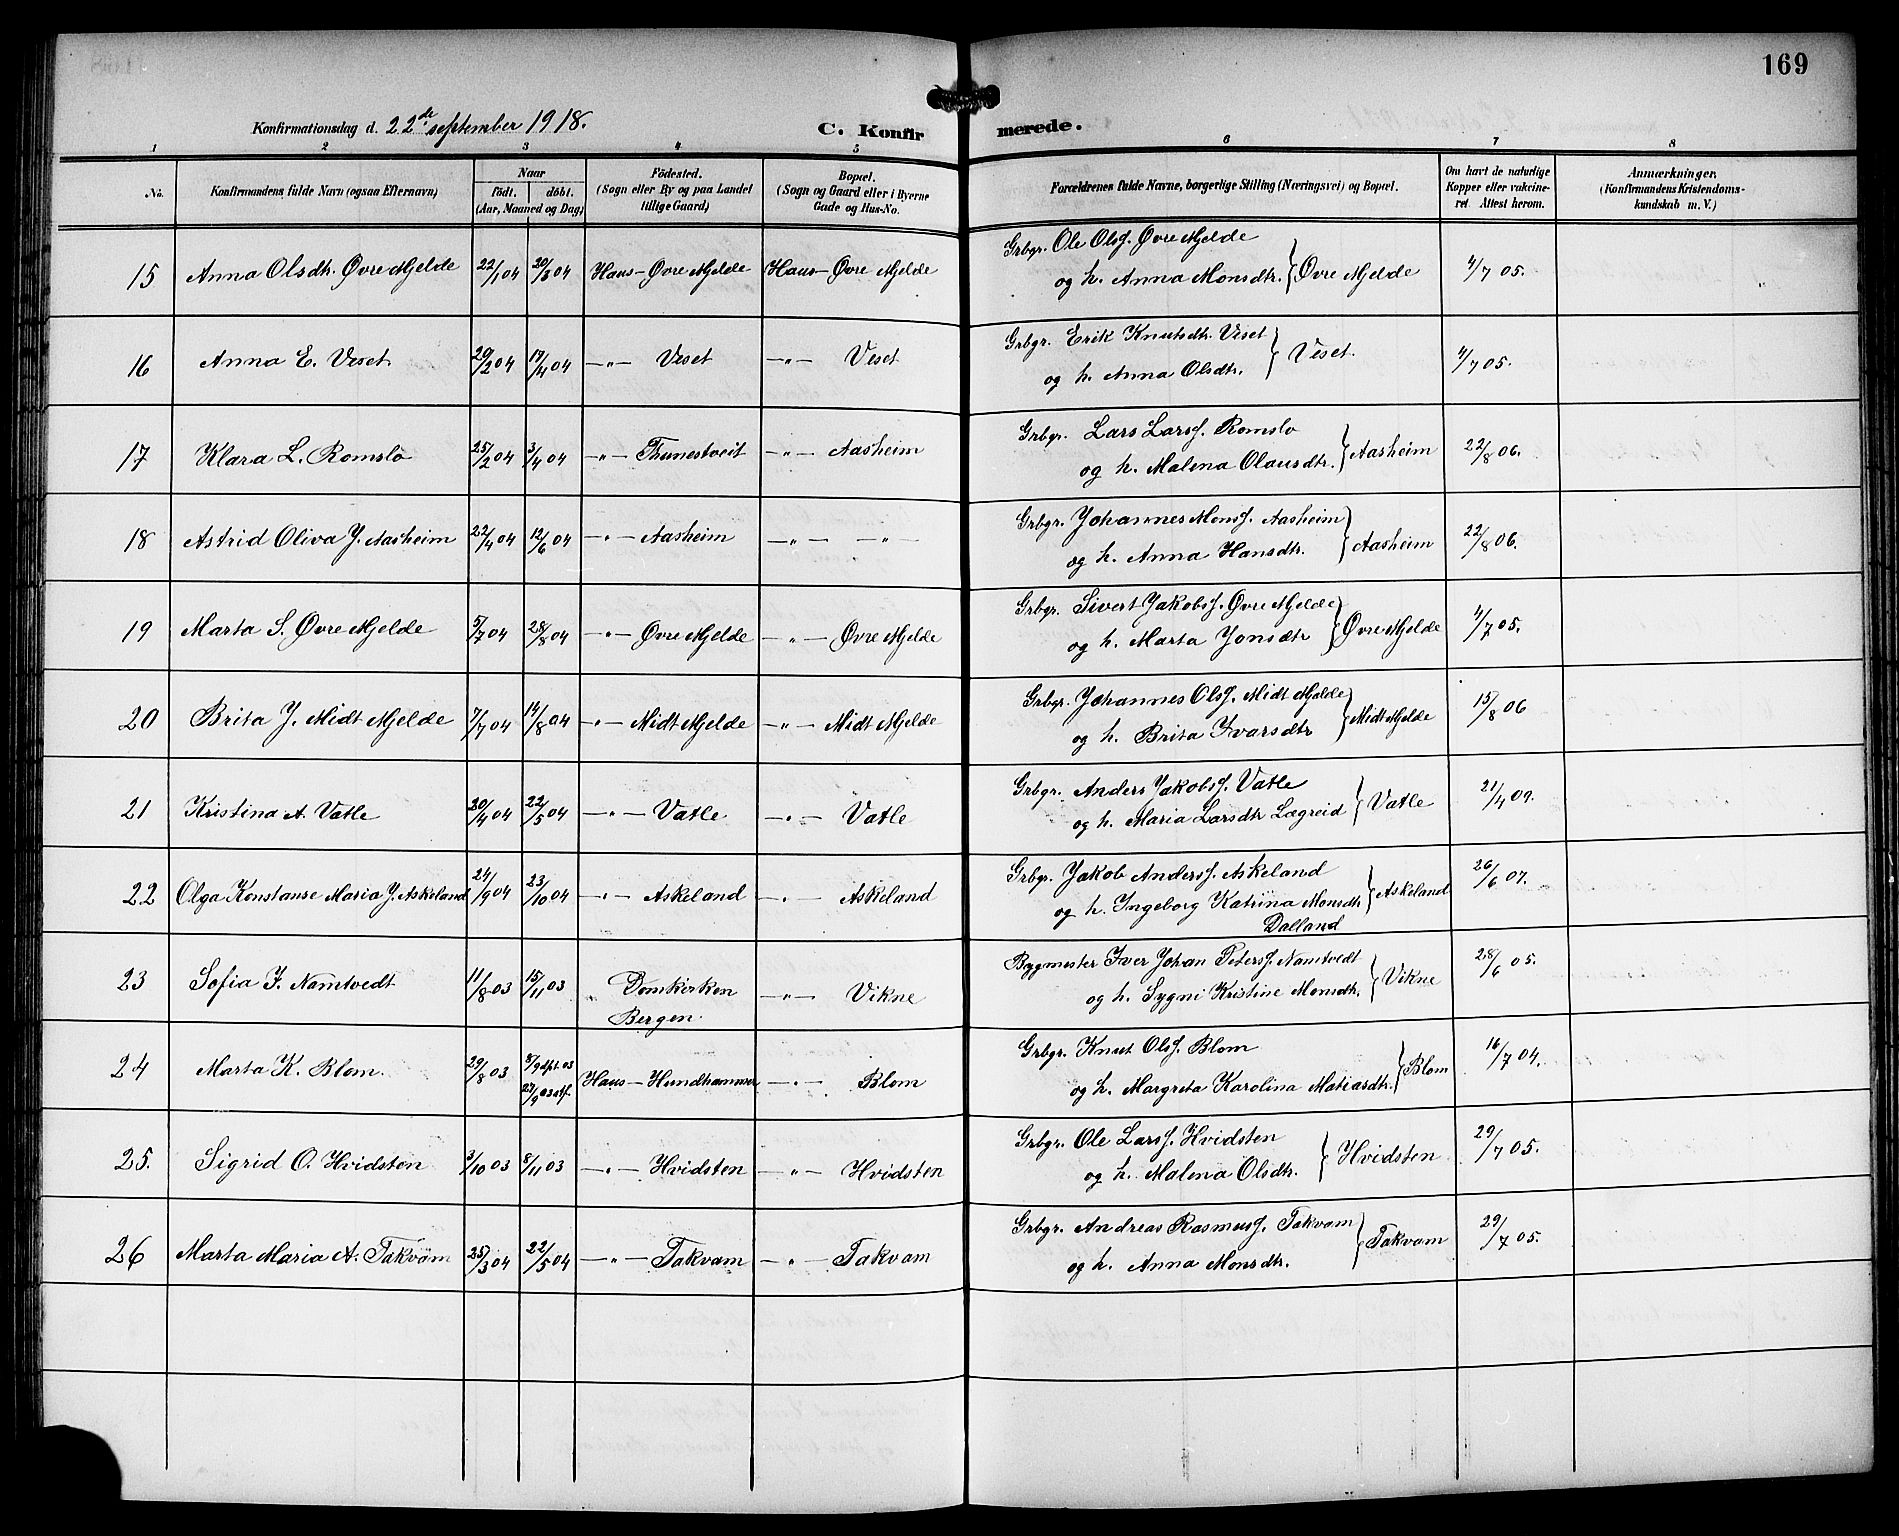 169
Konfirmationsdag d. 22de september 1918. C. Konfirmerede.
1 2 3 4 5 6 7 8
No. Konfirmandens fulde Navn (ogsaa Efternavn) Naar födt. döbt. (Aar, Maaned og Dag) Födested. (Sogn eller By og paa Landet tillige Gaard) Bopæl. (Sogn og Gaard eller i Byerne Gade og Hus-No. Forældrenes fulde Navne, borgerlige Stilling (Næringsvei) og Bopæl. Om havt de naturlige Kopper eller vakcineret Attest herom. Anmærkninger. (Konfirmandens Kristendomskundskab m. V.)
15 Anna Olsdtr. Øvre Mjelde 22/1 04 20/3 04 Haus - Øvre Mjelde Haus - Øvre Mjelde Grbgr. Ole Olsf. Øvre Mjelde
og h. Anna Monsdtr. } Øvre Mjelde 4/7 05.
16 Anna E. Veset. 29/2 04 17/4 04 -"- Veset -"- Veset Grbgr. Erik Knutsdtr. Veset
og h. Anna Olsdtr. } Veset. 4/7 05.
17 Klara L. Romslo 25/2 04 3/4 04 -"- Thunestveit -"- Aasheim Grbgr. Lars Larsf. Romslo
og h. Malena Olausdtr. } Aasheim 22/8 06.
18 Astrid Oliva J. Aasheim 22/4 04 12/6 04 -"- Aasheim -"- -"- Grbgr. Johannes Monsf. Aasheim
og h. Anna Hansdtr. } Aasheim 22/8 06.
19 Marta S. Øvre Mjelde 5/7 04 28/8 04 -"- Øvre Mjelde -"- Øvre Mjelde Grbgr. Sivert Jakobsf. Øvre Mjelde
og h. Marta Jonsdtr } Øvre Mjelde 4/7 05.
20 Brita J. Midt Mjelde 7/7 04 14/8 04 -"- Midt Mjelde -"- Midt Mjelde Grbgr. Johannes Olsf. Midt Mjelde
og h. Brita Ivarsdtr } Midt Mjelde 15/8 06
21 Kristina A. Vatle 20/4 04 22/5 04 -"- Vatle -"- Vatle Grbgr. Anders Jakobsf. Vatle
og h. Maria Larsdtr Lægreid } Vatle 21/4 09.
22 Olga Konstanse Maria J. Askeland 24/9 04 23/10 04 -"- Askeland -"- Askeland Grbgr. Jakob Andersf. Askeland
og h. Ingeborg Katrina Monsdtr } Askeland 26/6 07.
Dalland
23 Sofia I. Namtvedt 11/8 03 15/11 03 Domkirken -"- Vikne Bygmester Iver Johan Petersf. Namtvedt
Bergen. og h. Sygni Kristine Monsdtr. } Vikne 28/6 05.
24 Marta K. Blom. 29/8 03 8/9 dpt. 03
27/9 03 stf. Haus - Hundhammer -"- Blom Grbgr. Knut Olsf. Blom
og h. Margreta Karolina Matiasdtr. } Blom 16/7 04.
25. Sigrid O. Hvidsten 3/10 03 8/11 03 -"- Hvidsten -"- Hvidsten Grbgr. Ole Larsf. Hvidsten
og h. Malena Olsdtr. } Hvidsten 29/7 05.
26 Marta Maria A. Takvam 25/3 04 22/5 04 -"- Takvam -"- Takvam Grbgr. Andreas Rasmusf. Takvam
og h. Anna Monsdtr. } Takvam 29/7 05.